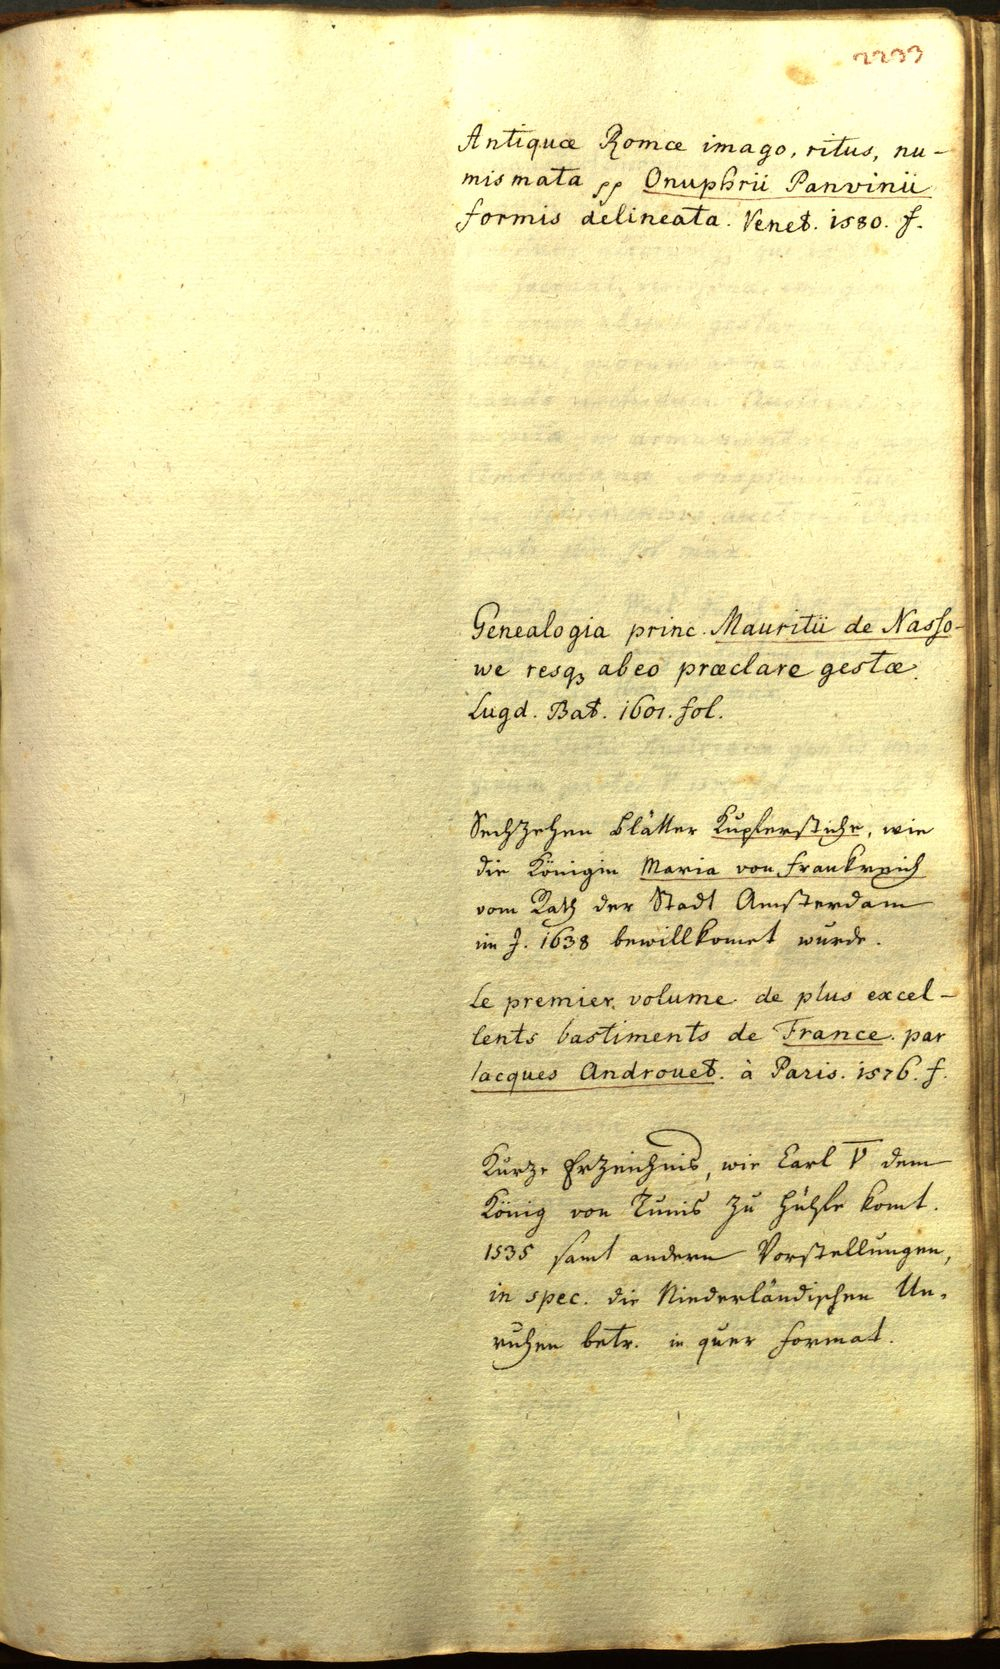 2233
Antiquæ Romæ imago, ritus, nu-
mismata pp Onuphrii Panvinii
formis delineata. Venet. 1580. f.
Genealogia princ. Mauritii de Nasso-
we resq3 ab eo præclare gestæ.
Lugd. Bat. 1601. fol.
Sechzehen Blätter Kupferstiche, wie
die Königin Maria von Frankreich
vom Rath der Stadt Amsterdam
im J. 1638 bewillkomet wurde.
Le premier volume de plus excel-
lents bastiments de France. par
Jacques Androuet. à Paris. 1576. f.
Kurze Erzeichnis, wie Carl V dem
König von Tunis zu Hülfe komt.
1535 samt andern Vorstellungen,
in spec. die Niederländischen Un-
ruhen betr. in quer format.